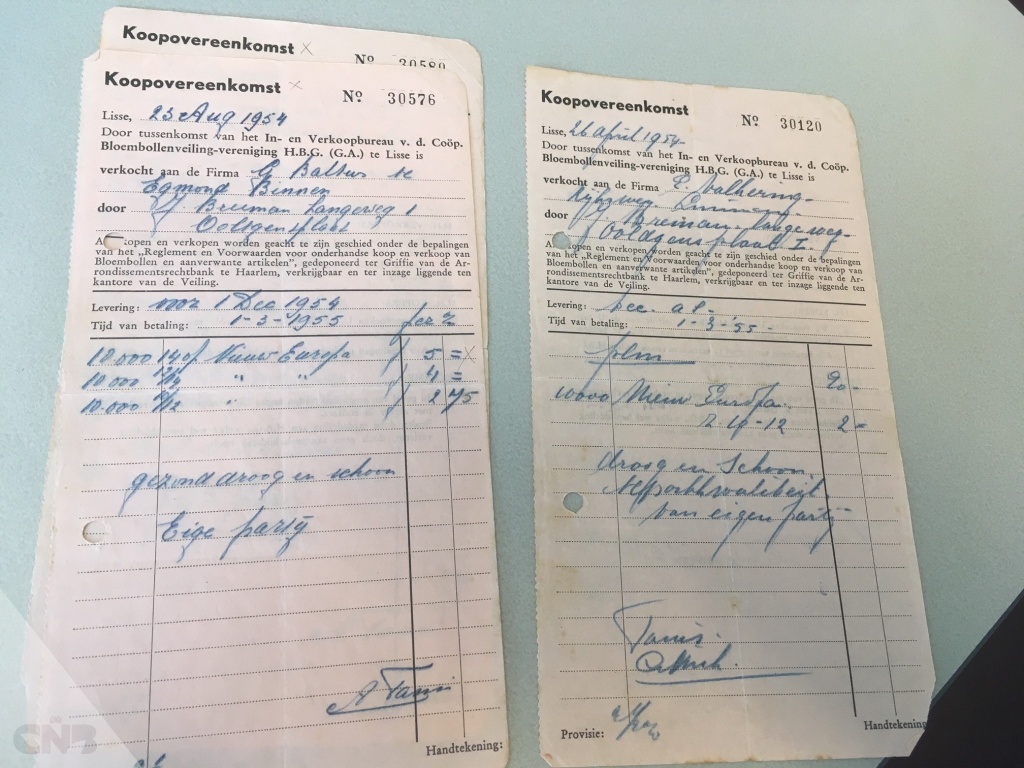 Koopovereenkomst x
Nº 30580
Koopovereenkomst x
Nº 30576
Lisse, 23 Aug 1954
Door tussenkomst van het In- en Verkoopbureau v. d. Coöp.
Bloembollenveiling-vereniging H.B.G. (G.A.) te Lisse is
verkocht aan de Firma G Baltus te
Egmond Binnen
door J. Breman Langeweg 1
Ooltgensplaat
kopen en verkopen worden geacht te zijn geschied onder de bepalingen
van het „Reglement en Voorwaarden voor onderhandse koop en verkoop van
Bloembollen en aanverwante artikelen”, gedeponeerd ter Griffie van de Ar-
rondissementsrechtbank te Haarlem, verkrijgbaar en ter inzage liggende ten
kantore van de Veiling.
Levering: voor 1 Dec 1954
Tijd van betaling: 1-3-1955 per %
10.000 14 op Nieuw Europa f 5 = x
10.000 12/14 " " f 4 =
10.000 " f 2 75
gezond droog en schoon
Eige partij
A Tanis
Handtekening:
Koopovereenkomst
Nº 30120
Lisse, 26 April 1954
Door tussenkomst van het In- en Verkoopbureau v. d. Coöp.
Bloembollenveiling-vereniging H.B.G. (G.A.) te Lisse is
verkocht aan de Firma E. Valkering
Rijksweg Limmen
door J. Breman Langeweg
Ooldgensplaat I.
kopen en verkopen worden geacht te zijn geschied onder de bepalingen
van het „Reglement en Voorwaarden voor onderhandse koop en verkoop van
Bloembollen en aanverwante artikelen”, gedeponeerd ter Griffie van de Ar-
rondissementsrechtbank te Haarlem, verkrijgbaar en ter inzage liggende ten
kantore van de Veiling.
Levering: Dec. a.s.
Tijd van betaling: 1-3-'55-
10000 Nieuw Europa
10-12 2=
droog en schoon
exportkwaliteit
van eigen partij
Tanis.
Provisie:
Handtekening:
CNB